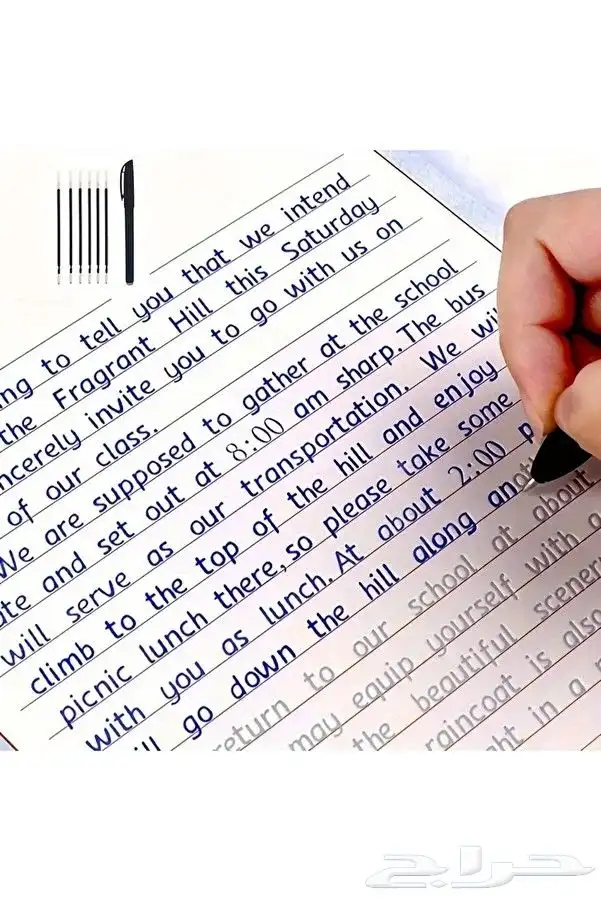 ng to tell you that we intend
the Fragrant Hill this Saturday
ncerely invite you to go with us on
of our class.
We are supposed to gather at the school
te and set out at 8:00 am sharp. The bus
will serve as our transportation. We wi
climb to the top of the hill and enjoy
picnic lunch there, so please take some
with you as lunch. At about 2:00 p
ll go down the hill along anot
return to our school at about
may equip yourself with a
the beautiful scener
raincoat is also
ht in a
حراج